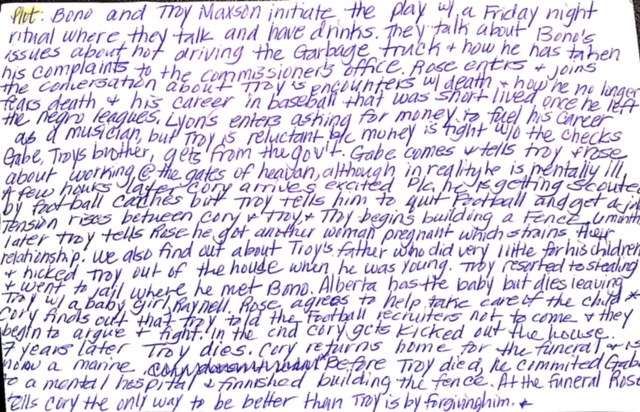 Plot: Bono and Troy Maxson initiate the play w/ a Friday night
ritual where they talk and have drinks. They talk about Bono's
issues about not driving the Garbage truck + how he has taken
his complaints to the commissioner's office. Rose enters + joins
the conversation about Troy's encounters w/ death + how he no longer
fears death + his career in baseball that was short lived once he left
the negro leagues. Lyons enters asking for money to fuel his career
as a musician, but Troy is reluctant b/c money is tight w/o the checks
Gabe, Troys brother, gets from the gov't. Gabe comes + tells troy + rose
about working @ the gates of heavan, although in reality he is mentally ill
A few hours later Cory arrives excited b/c he is getting scouted
by Football coaches but Troy tells him to quit Football and get a job
Tension rises between Cory + Troy, + Troy begins building a Fence.
later Troy tells Rose he got another woman pregnant which strains their
relationship. We also find out about Troy's father who did very little for his children
+ kicked Troy out of the house when he was young. Troy resorted to stealing
+ went to jail where he met Bono. Alberta has the baby but dies leaving
Troy w/ a baby girl, Raynell. Rose agrees to help take care of the child +
Cory finds out that troy told the football recruiters not to come + they
begin to argue + fight. In the end cory gets kicked out the house.
7 years later Troy dies. Cory returns home for the funeral + is
now a marine. Before Troy died, he commited Gabe
to a mental hospital + finnished building the fence. At the funeral Rose
tells cory the only way to be better than Troy is by forgiving him. +